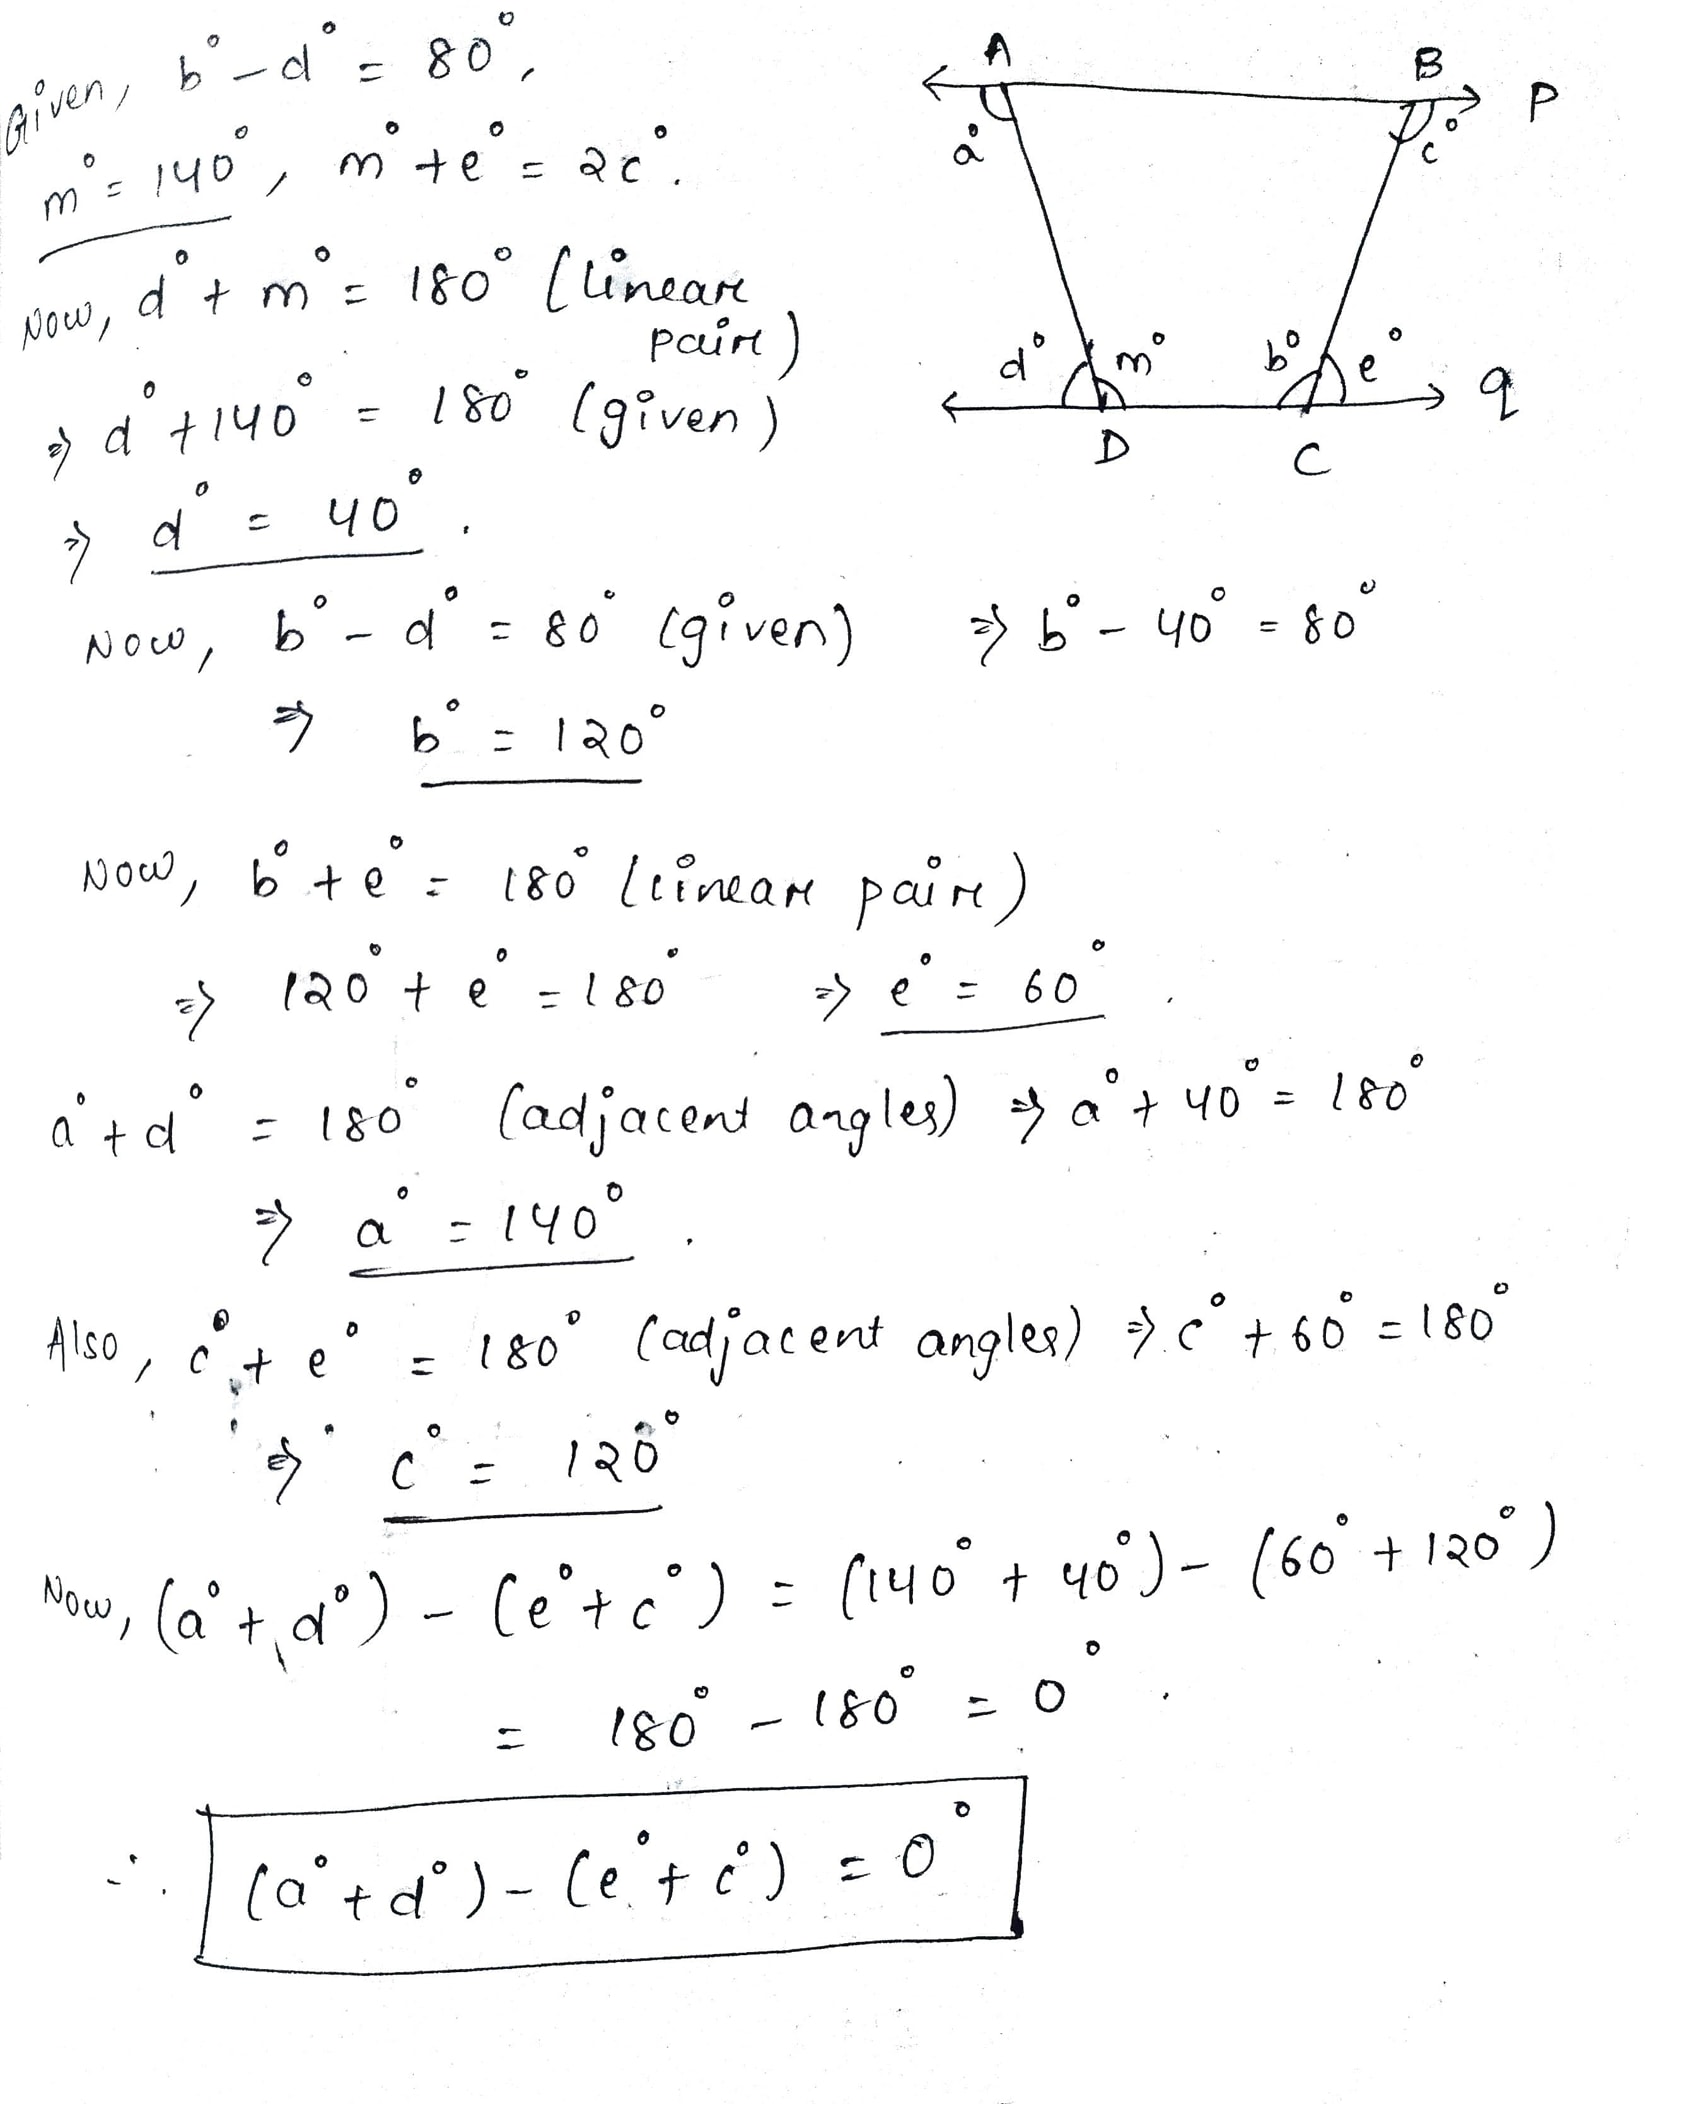 Given, b° - d° = 80°,
m° = 140°, m° + e° = 2c°.
Now, d° + m° = 180° (linear
pair)
⇒ d° + 140° = 180° (given)
⇒ d° = 40°.
Now, b° - d° = 80° (given) ⇒ b° - 40° = 80°
⇒ b° = 120°
Now, b° + e° = 180° (linear pair)
⇒ 120° + e° = 180° ⇒ e° = 60°.
a° + d° = 180° (adjacent angles) ⇒ a° + 40° = 180°
⇒ a° = 140°.
Also, c° + e° = 180° (adjacent angles) ⇒ c° + 60° = 180°
⇒ c° = 120°
Now, (a° + d°) - (e° + c°) = (140° + 40°) - (60° + 120°)
= 180° - 180° = 0°.
∴ (a° + d°) - (e° + c°) = 0°
A B P
a° c°
d° m° b° e° q
D C